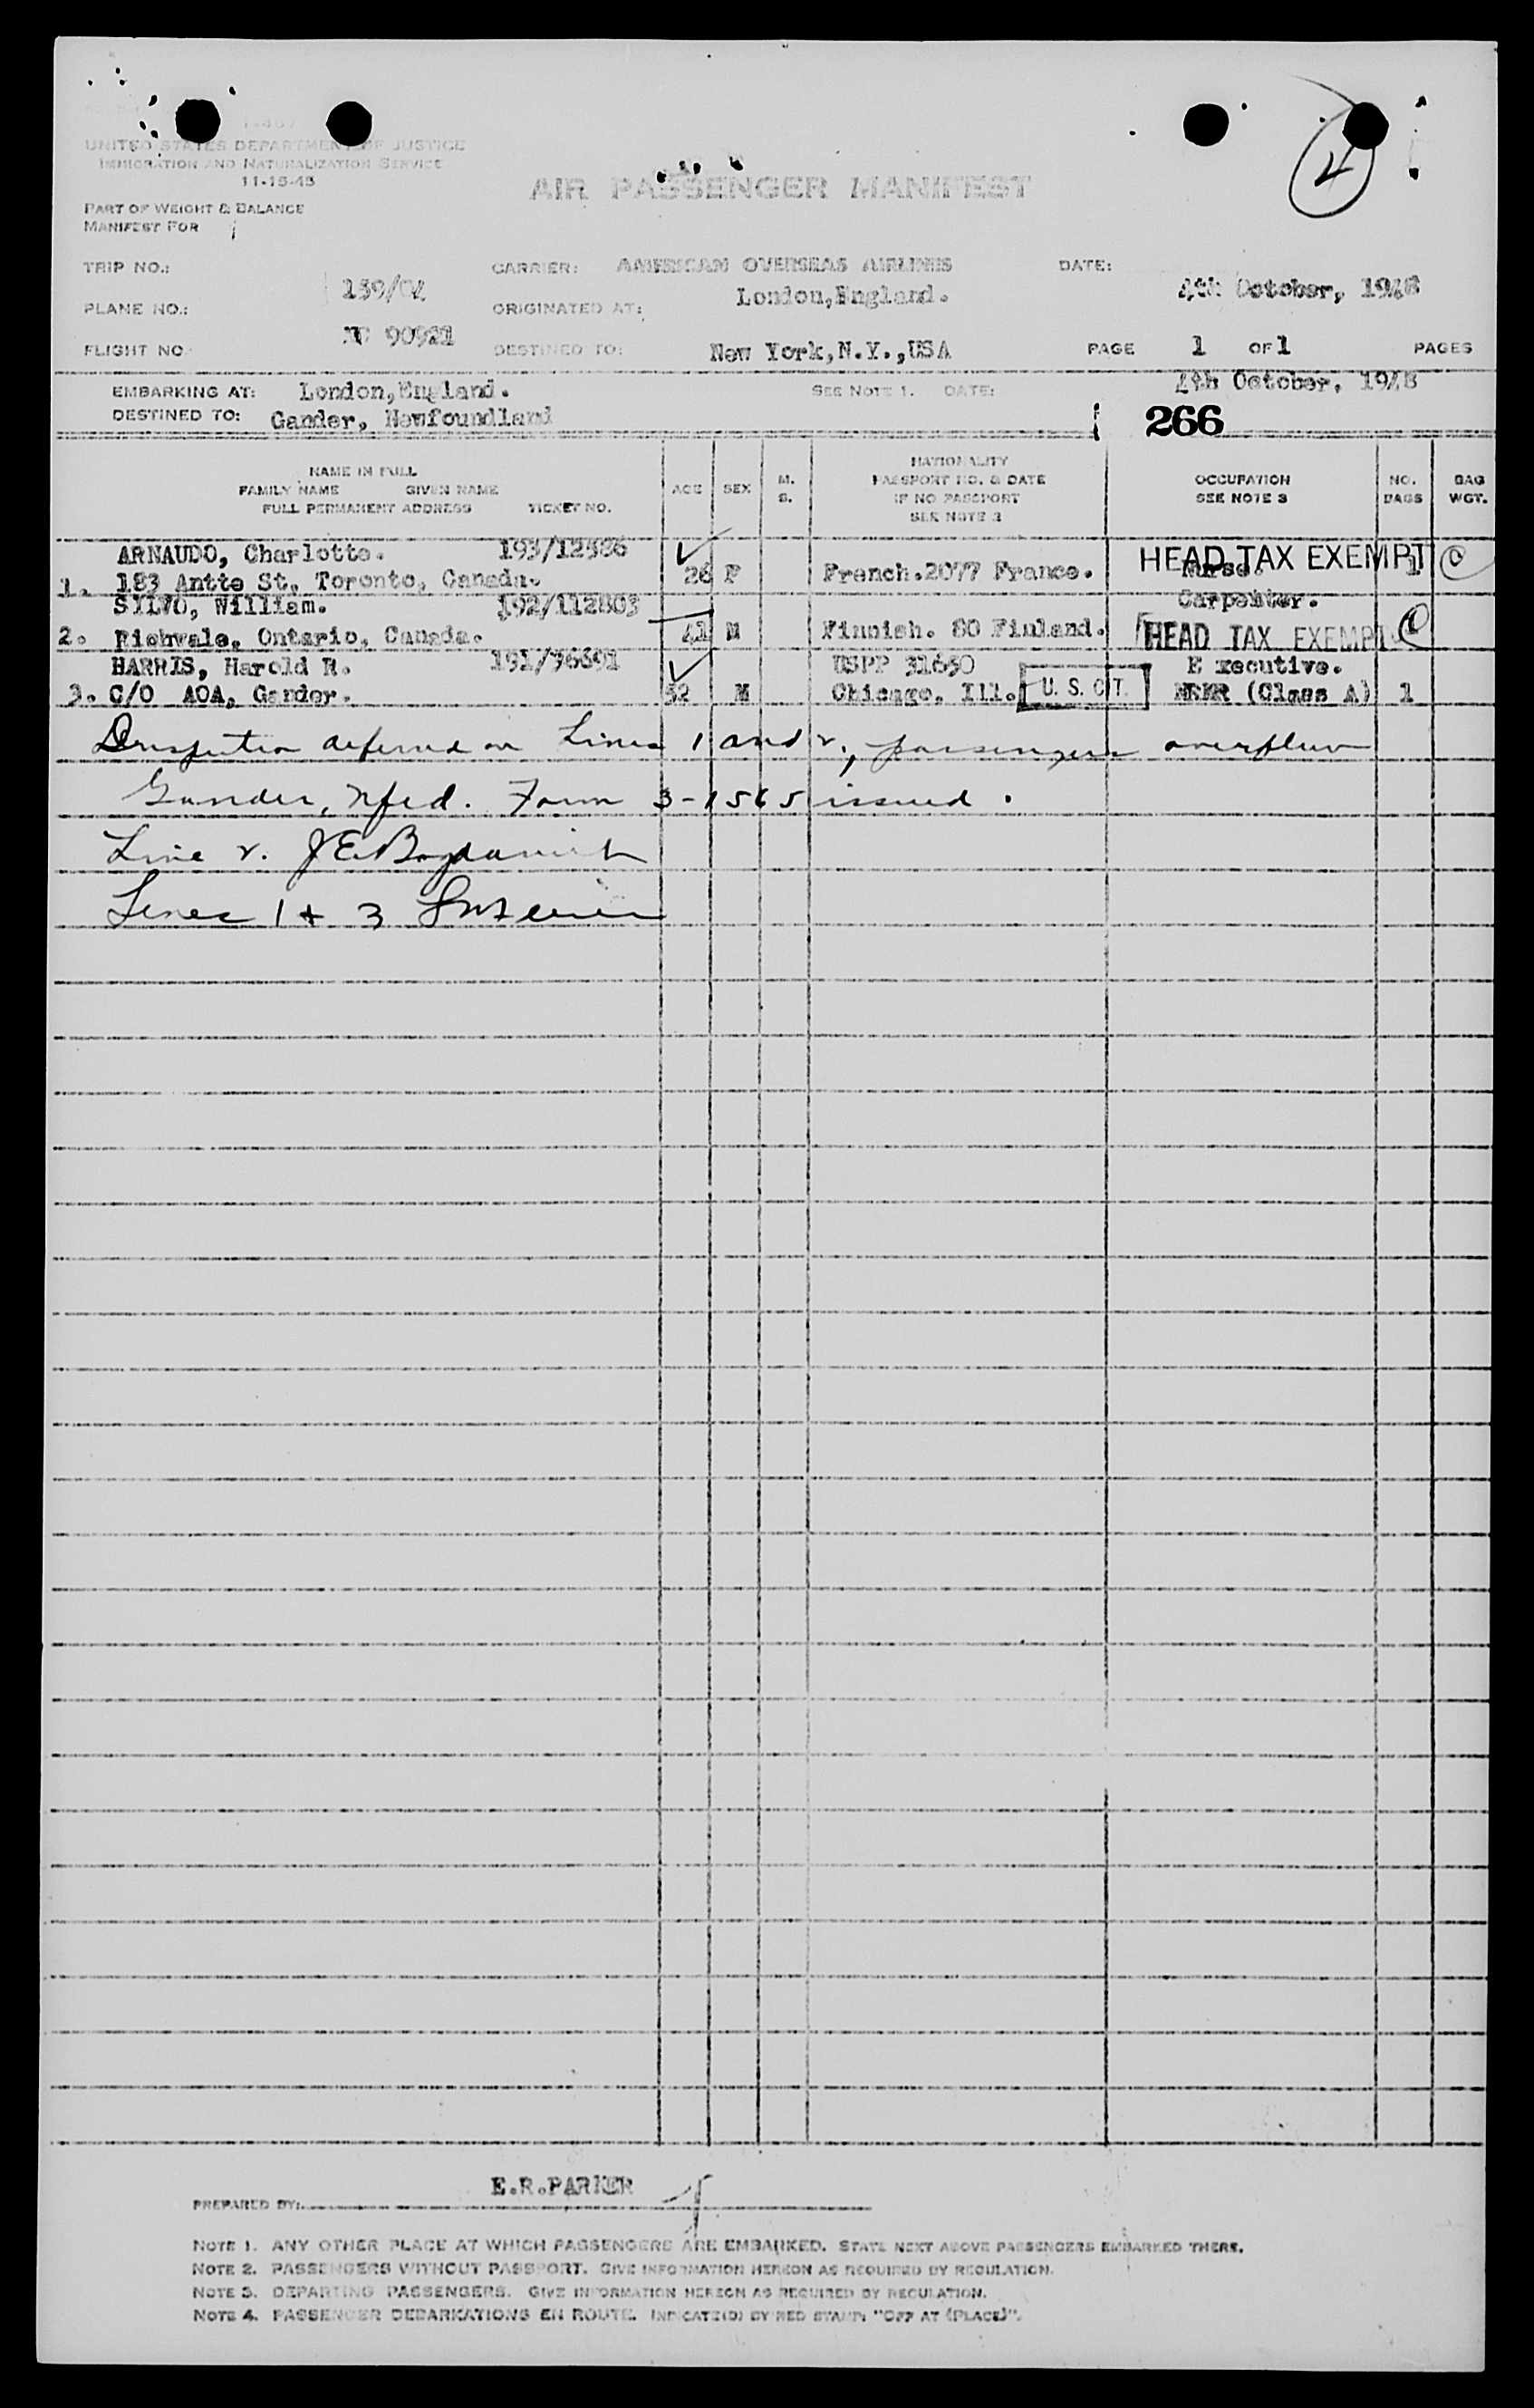 UNITED STATES DEPARTMENT OF JUSTICE
IMMIGRATION AND NATURALIZATION SERVICE
11-15-45
AIR PASSENGER MANIFEST
PART OF WEIGHT & BALANCE
MANIFEST FOR
TRIP NO.: 159/
CARRIER: AMERICAN OVERSEAS AIRLINES
DATE: 4th October, 1948
PLANE NO.: NC 90921
ORIGINATED AT: London, England.
FLIGHT NO
DESTINED TO: New York, N.Y., USA
PAGE 1 OF 1 PAGES
EMBARKING AT: London, England.
SEE NOTE 1. DATE: 4th October, 1948
DESTINED TO: Gander, Newfoundland
266
NAME IN FULL
FAMILY NAME GIVEN NAME
FULL PERMANENT ADDRESS TICKET NO.
AGE SEX M. S.
NATIONALITY
PASSPORT NO. & DATE
IF NO PASSPORT
SEE NOTE 2
OCCUPATION
SEE NOTE 3
NO. BAGS
BAG WGT.
ARNAUDO, Charlotte. 193/12586 HEAD TAX EXEMPT
1. 183 Antte St. Toronto, Canada. 26 F French. 2077 France. Nurse. 1
SILVO, William. 192/112803 Carpenter.
2. Richvale, Ontario, Canada. 41 M Finnish. 80 Finland. HEAD TAX EXEMPT
HARRIS, Harold R. 191/76691 USPP 31650 Executive.
3. C/O AOA, Gander. 52 M Chicago, Ill. U. S. CIT. (Class A) 1
Inspection deferred on Lines 1 and 2, passengers overflew
Gander, Nfld. Form 3-1565 issued.
Line 2. J E Bogdanich
Lines 1 + 3
E.R.PARKER
PREPARED BY:
NOTE 1. ANY OTHER PLACE AT WHICH PASSENGERS ARE EMBARKED. STATE NEXT ABOVE PASSENGERS EMBARKED THERE.
NOTE 2. PASSENGERS WITHOUT PASSPORT. GIVE INFORMATION HEREON AS REQUIRED BY REGULATION.
NOTE 3. DEPARTING PASSENGERS. GIVE INFORMATION HEREON AS REQUIRED BY REGULATION.
NOTE 4. PASSENGER DEBARKATIONS EN ROUTE. INDICATE(D) BY RED STAMP: "OFF AT (PLACE)".